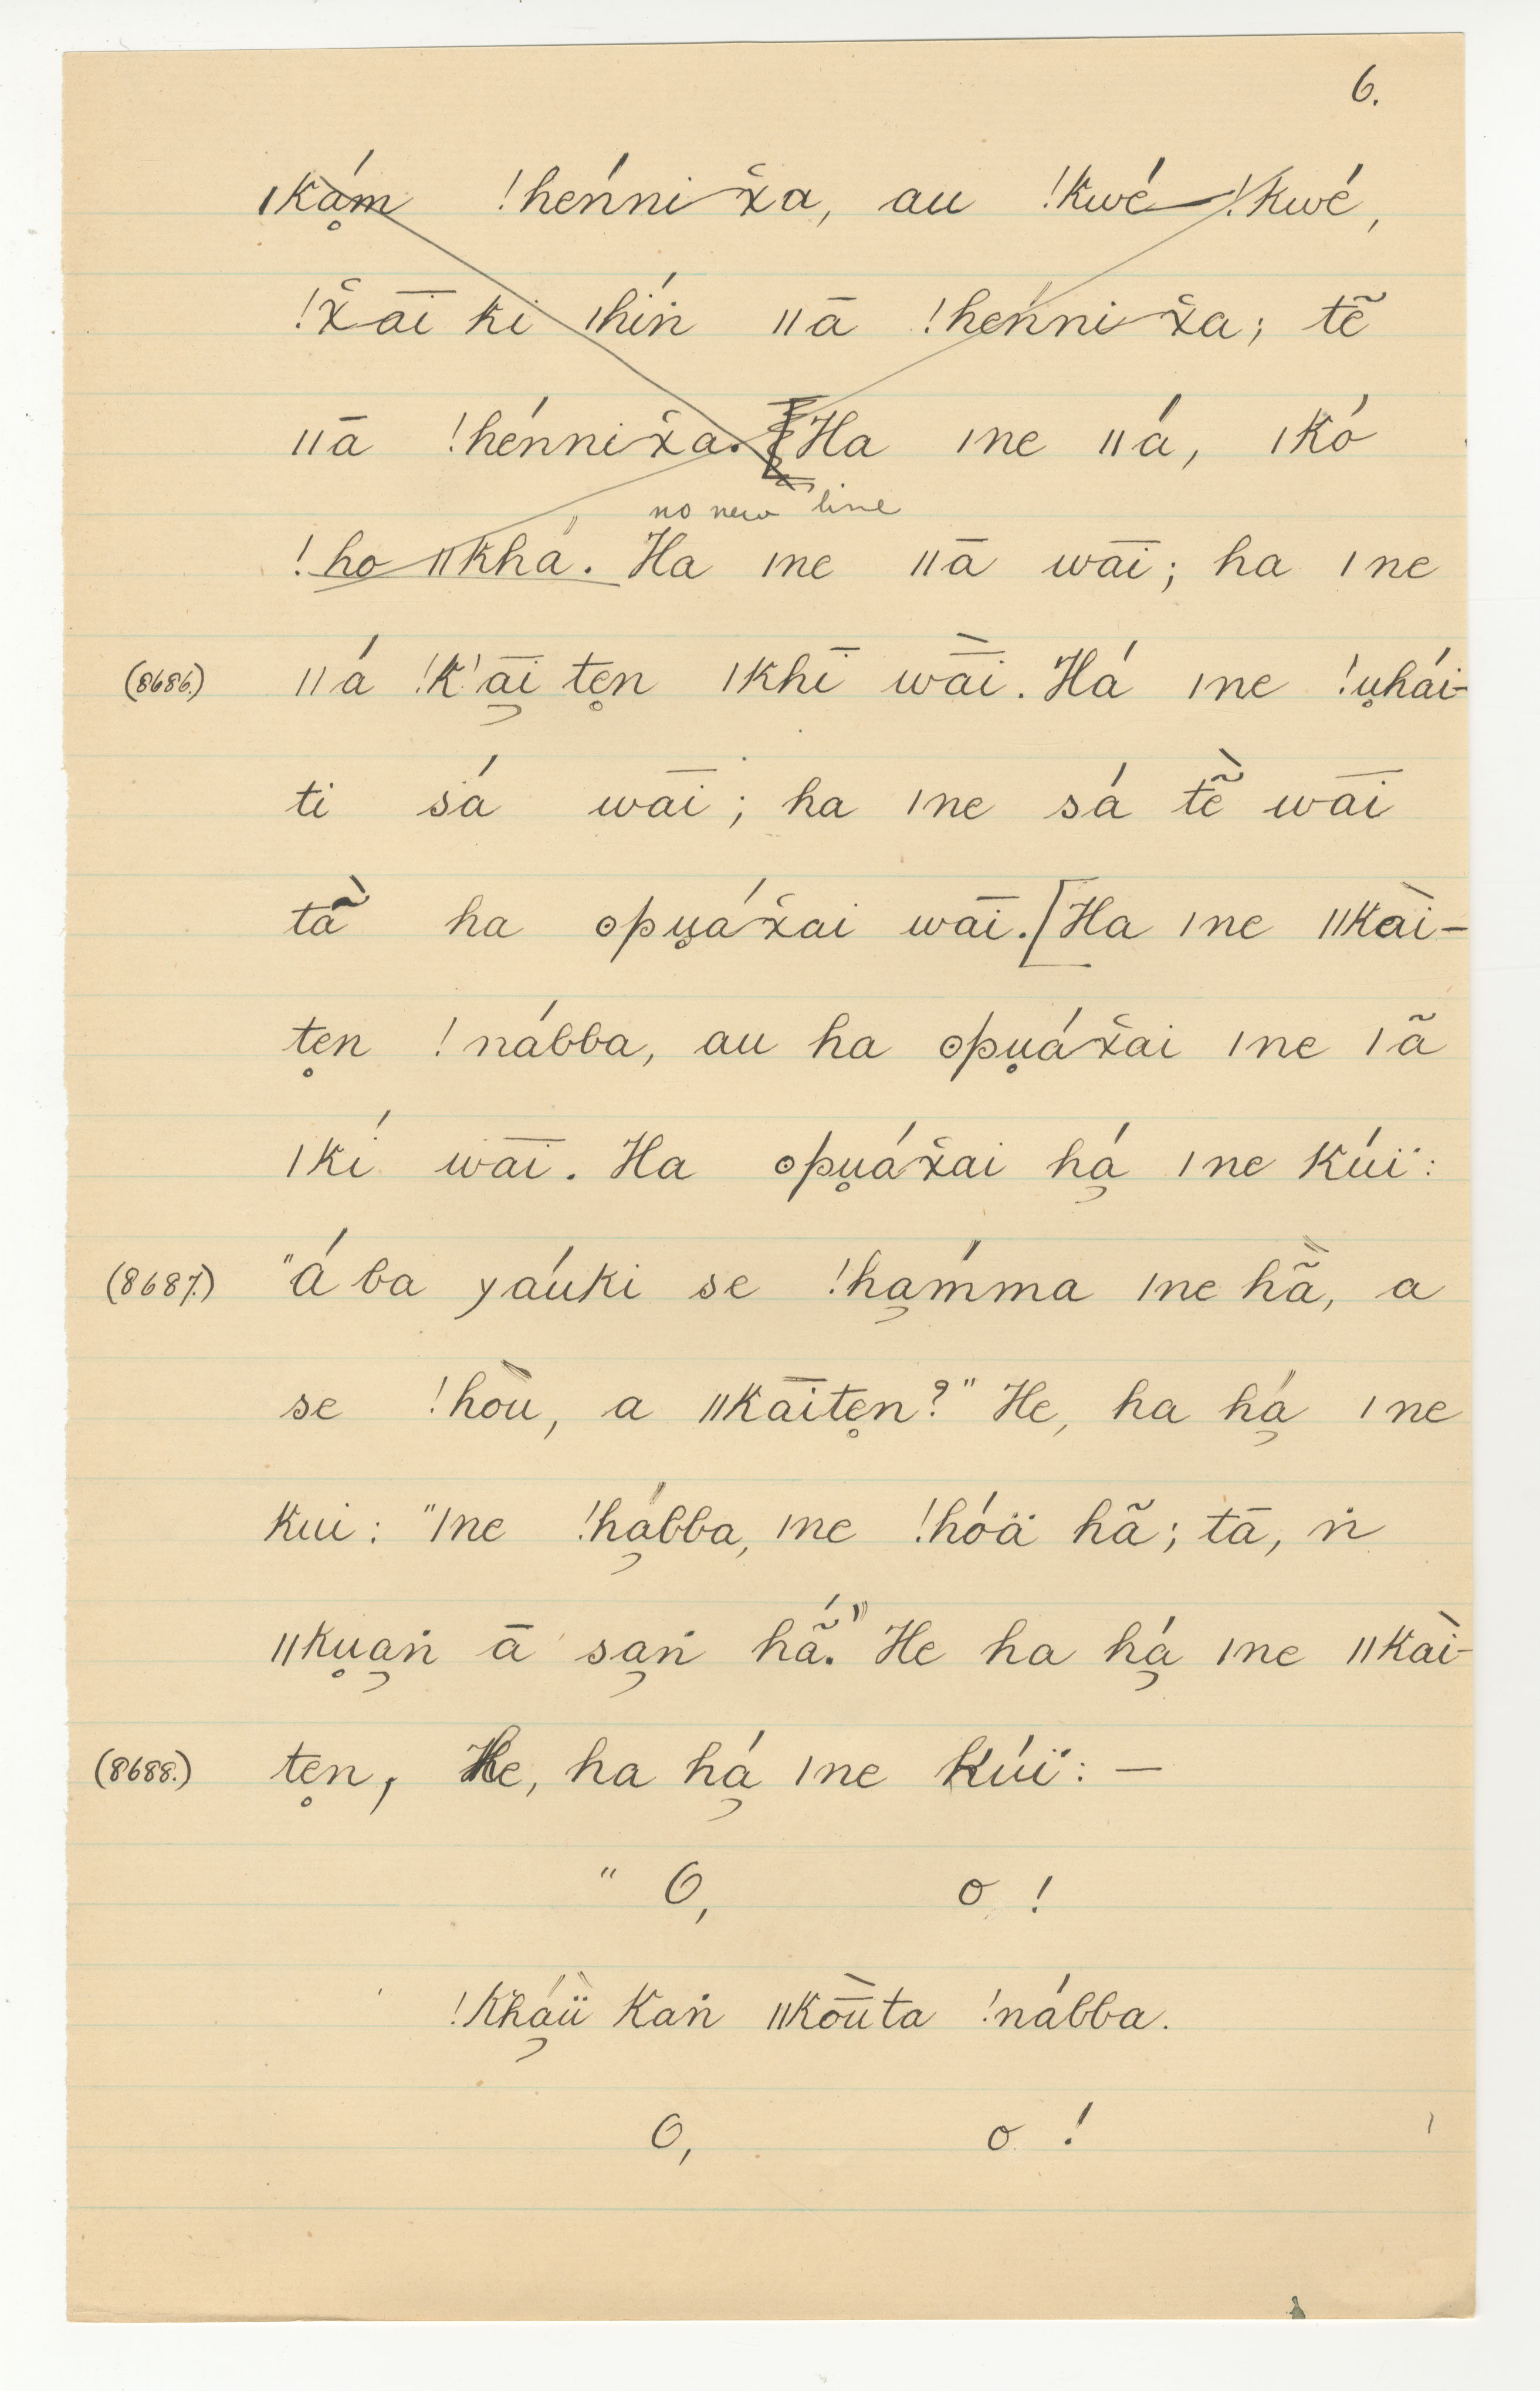 6.
ǀkḁ́m !héṅni x̌a, au !kwé !kwé,
!x̌āī ki ǀhíṅ ǁā !héṅni x̌a; tẽ
ǁā !hénni x̌a. [Ha ǀne ǁá, ǀkó
no new line
!ho ǁkhá. Ha ǀne ǁā wāī; ha ǀne
(8686.) ǁá !k'ā̢ī tē̥n ǀkhī wā̀ī. Há ǀne !u̥hái-
ti sá wāī; ha ǀne sá tẽ̀ wāī
tã̀ ha ʘpu̥áx̌ai wāī. [Ha ǀne ǁkài-
te̥n !nábba, au ha ʘpu̥áx̌ai ǀne ǀã
ǀkí wāī. Ha ʘpu̥áx̌ai há̢ ǀne kúï:
(8687.) "Á ba yáuki se !ha̢ḿma ǀne hã̀, a
se !hòu, a ǁkāīte̥n?" He, ha há̢ ǀne
kui: "ǀne !há̢bba, ǀne !hóä hã; tā, ṅ
ǁku̥a̢ṅ ā sa̢ṅ hã́." He ha há̢ ǀne ǁkaì-
(8688.) te̥n, He, ha há̢ ǀne kúï: —
" O, o !
!khá̢ǜ kaṅ ǁkṑūta !nábba.
O, o !